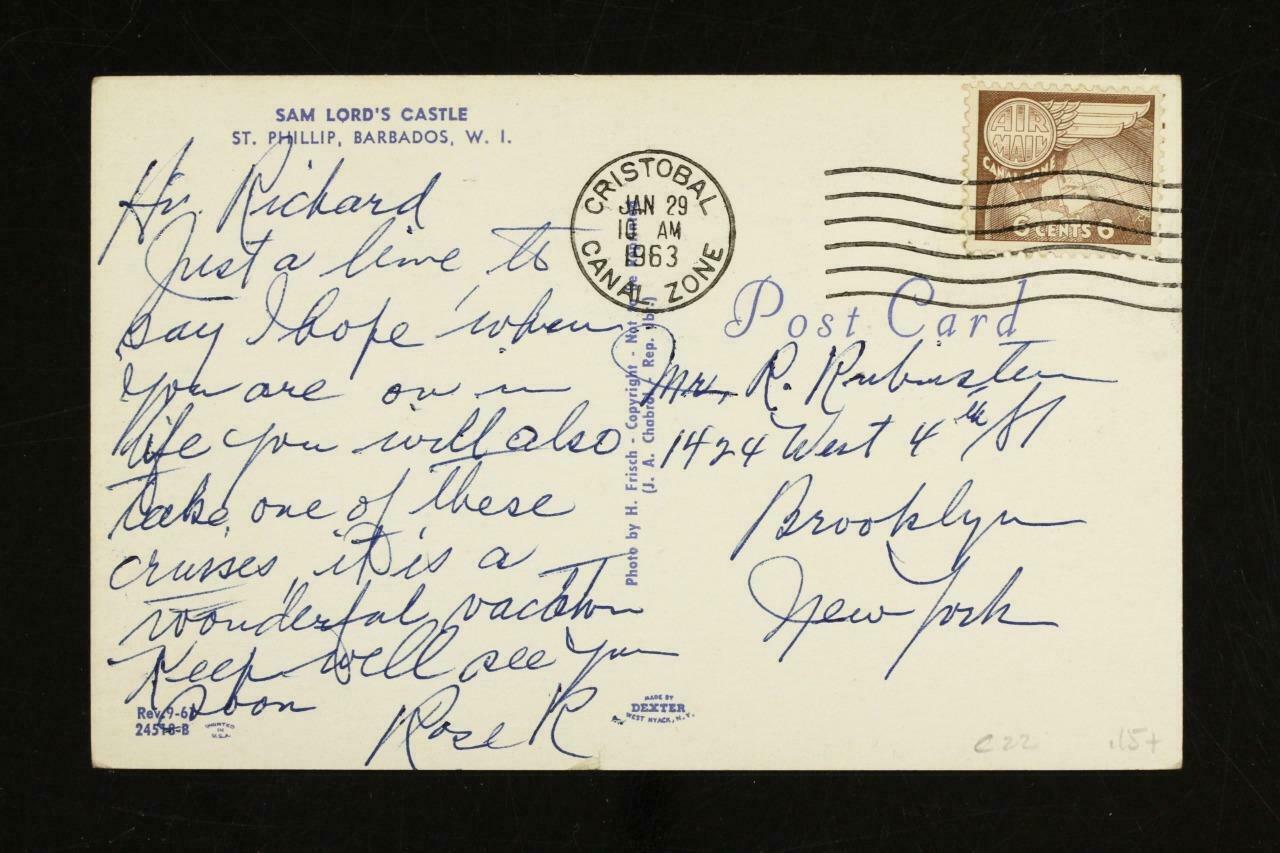 SAM LORD'S CASTLE
ST. PHILLIP, BARBADOS, W. I.
Hi. Richard
Just a line to
say I hope when
you are on in
life you will also
take one of these
cruises, it is a
wonderful vacation
Keep well see you
soon
Rose R
Rev. 9-61
24518-B
PRINTED
IN
U.S.A.
Photo by H. Frisch - Copyright - Not to be
(J. A. Chabrol, Rep. Jbr.)
MADE BY
DEXTER
WEST NYACK, N.Y.
CRISTOBAL
JAN 29
10 AM
1963
CANAL ZONE
AIR
MAIL
CANAL ZONE
6 CENTS 6
Post Card
Mr. R. Rubinstein
1424 West 4th St
Brooklyn
New York
C22
.15+